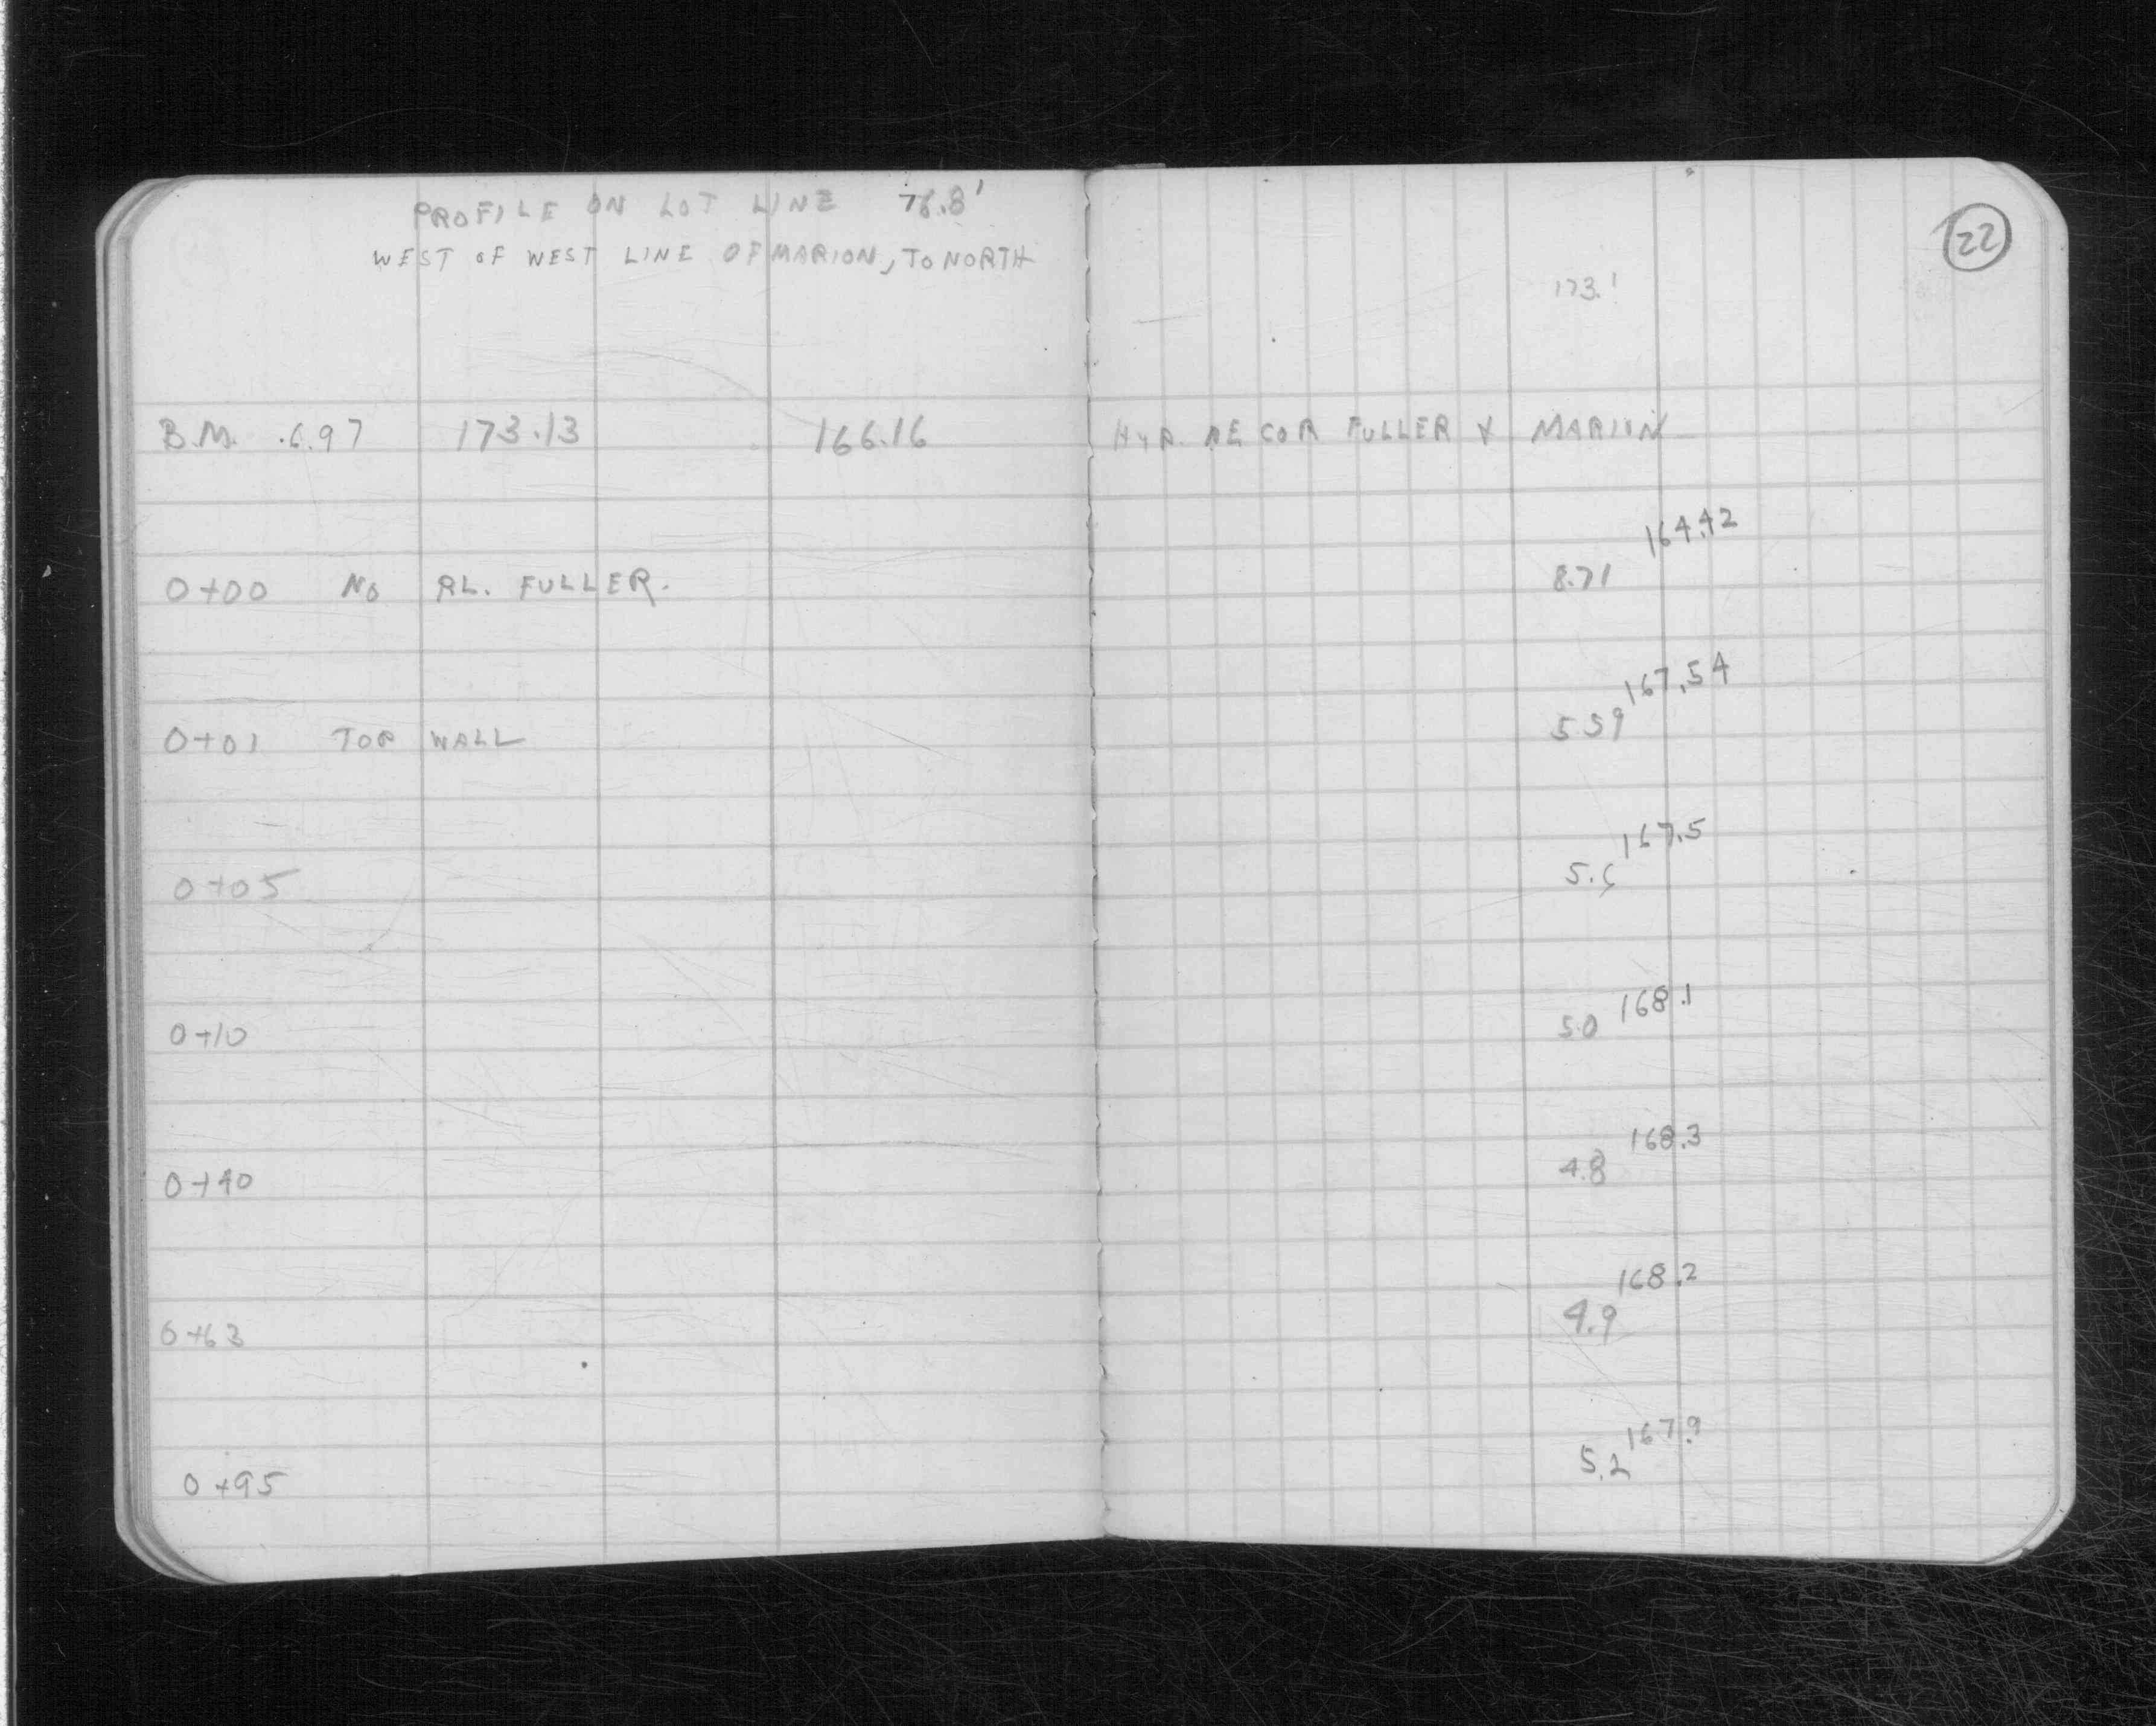 PROFILE ON LOT LINE 76.8'
WEST OF WEST LINE OF MARION, TO NORTH
22
173.1
B.M. 6.97 173.13 166.16 HYD. NE COR FULLER & MARION
164.42
0+00 No PL. FULLER. 8.71
167.54
0+01 TOP WALL 5.59
167.5
0+05 5.6
168.1
0+10 5.0
168.3
0+40 4.8
168.2
0+63 4.9
167.9
0+95 5.2